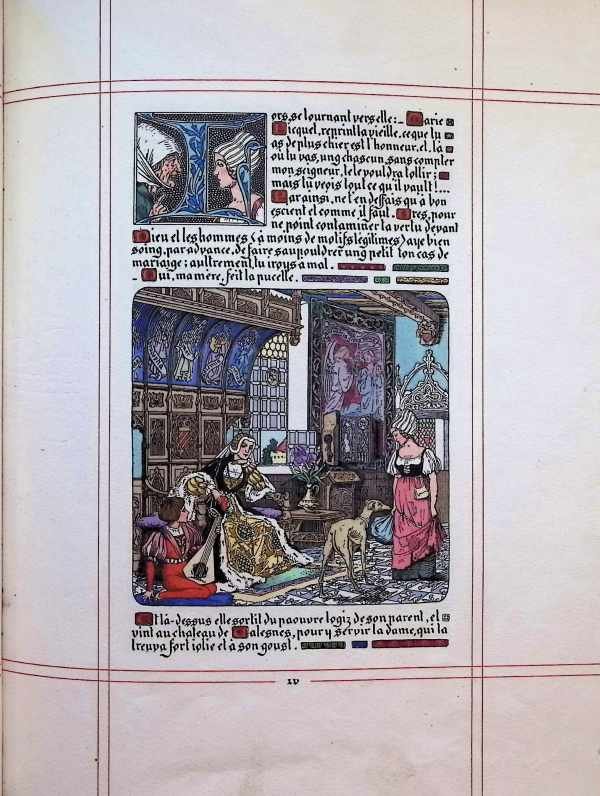 ors, se tournant vers elle : _ Marie
Ficquel, reprint la vieille, ce que tu
as de plus chier est l'honneur, et, là
où tu vas, ung chascun, sans compter
mon seigneur, te le vouldra tollir ;
mais tu veois tout ce qu'il vault !...
Par ainsi, ne t'en deffais qu'à bon
escient et comme il faut. Ores, pour
ne point contaminer ta vertu devant
Dieu et les hommes (à moins de motifs légitimes) aye bien
soing, par advance, de faire saupouldrer ung petit ton cas de
mariaige ; aultrement, tu iroys a mal.
_ Oui, ma mère, feit la pucelle.
Et là-dessus elle sortit du paouvre logiz de son parent, et
vint au chateau de Valesnes, pour y servir la dame, qui la
treuva fort iolie et à son goust.
IV